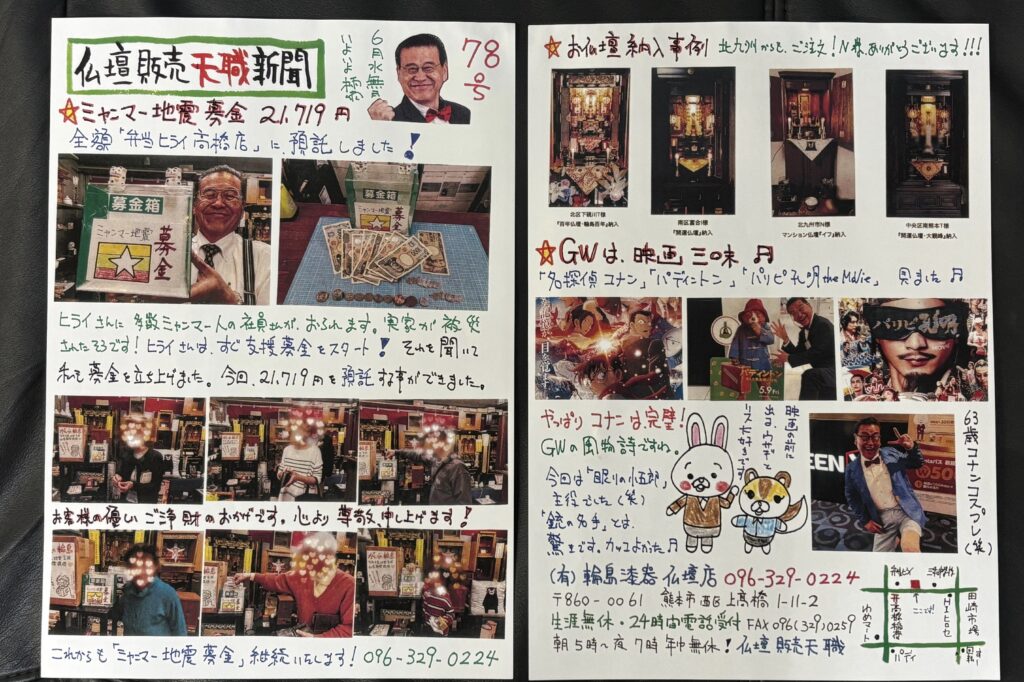 仏壇販売天職新聞
6月水無月
いよいよ
78号
☆ミャンマー地震募金 21,719円
全額「弁当ヒライ高橋店」に、預託しました!
募金箱
ミャンマー地震
募金
募金箱
ミャンマー地震
募金
ヒライさんに多数ミャンマー人の社員さんが、おられます。実家が被災
されたそうです!ヒライさんは、すぐ支援募金をスタート!それを聞いて
私も募金を立ち上げました。今回、21,719円を預託する事ができました。
お客様の優しいご浄財のおかげです。心より尊敬、申し上げます!
これからも「ミャンマー地震募金」継続いたします!096-329-0224
☆お仏壇納入事例 北九州からも、ご注文!N様、ありがとうございます!!!
北区下硯川T様
『百年仏壇・輪島百年』納入
南区富合I様
『開運仏壇』納入
北九州市N様
マンション仏壇『イフ』納入
中央区南熊本T様
『開運仏壇・大観峰』納入
☆GWは、映画三昧♬
「名探偵コナン」「パディントン」「パリピ孔明 the Movie」見ました♬
パディントン
5.9 Fri
パリピ孔明
やっぱりコナンは、完璧!
GWの風物詩ですね。
今回は「眠りの小五郎」
主役でした(笑)
「銃の名手」とは、
驚きです。カッコよかった♬
映画の前に
出る、ウサギと
リスも大好きです
63歳コナンコスプレ(笑)
(有)輪島漆器仏壇店 096-329-0224
〒860-0061 熊本市西区上高橋1-11-2
生涯無休・24時間電話受付 FAX 096(329)0259
朝5時〜夜7時年中無休!仏壇販売天職
ここです!
高橋稲荷
田崎市場
ゆめマート